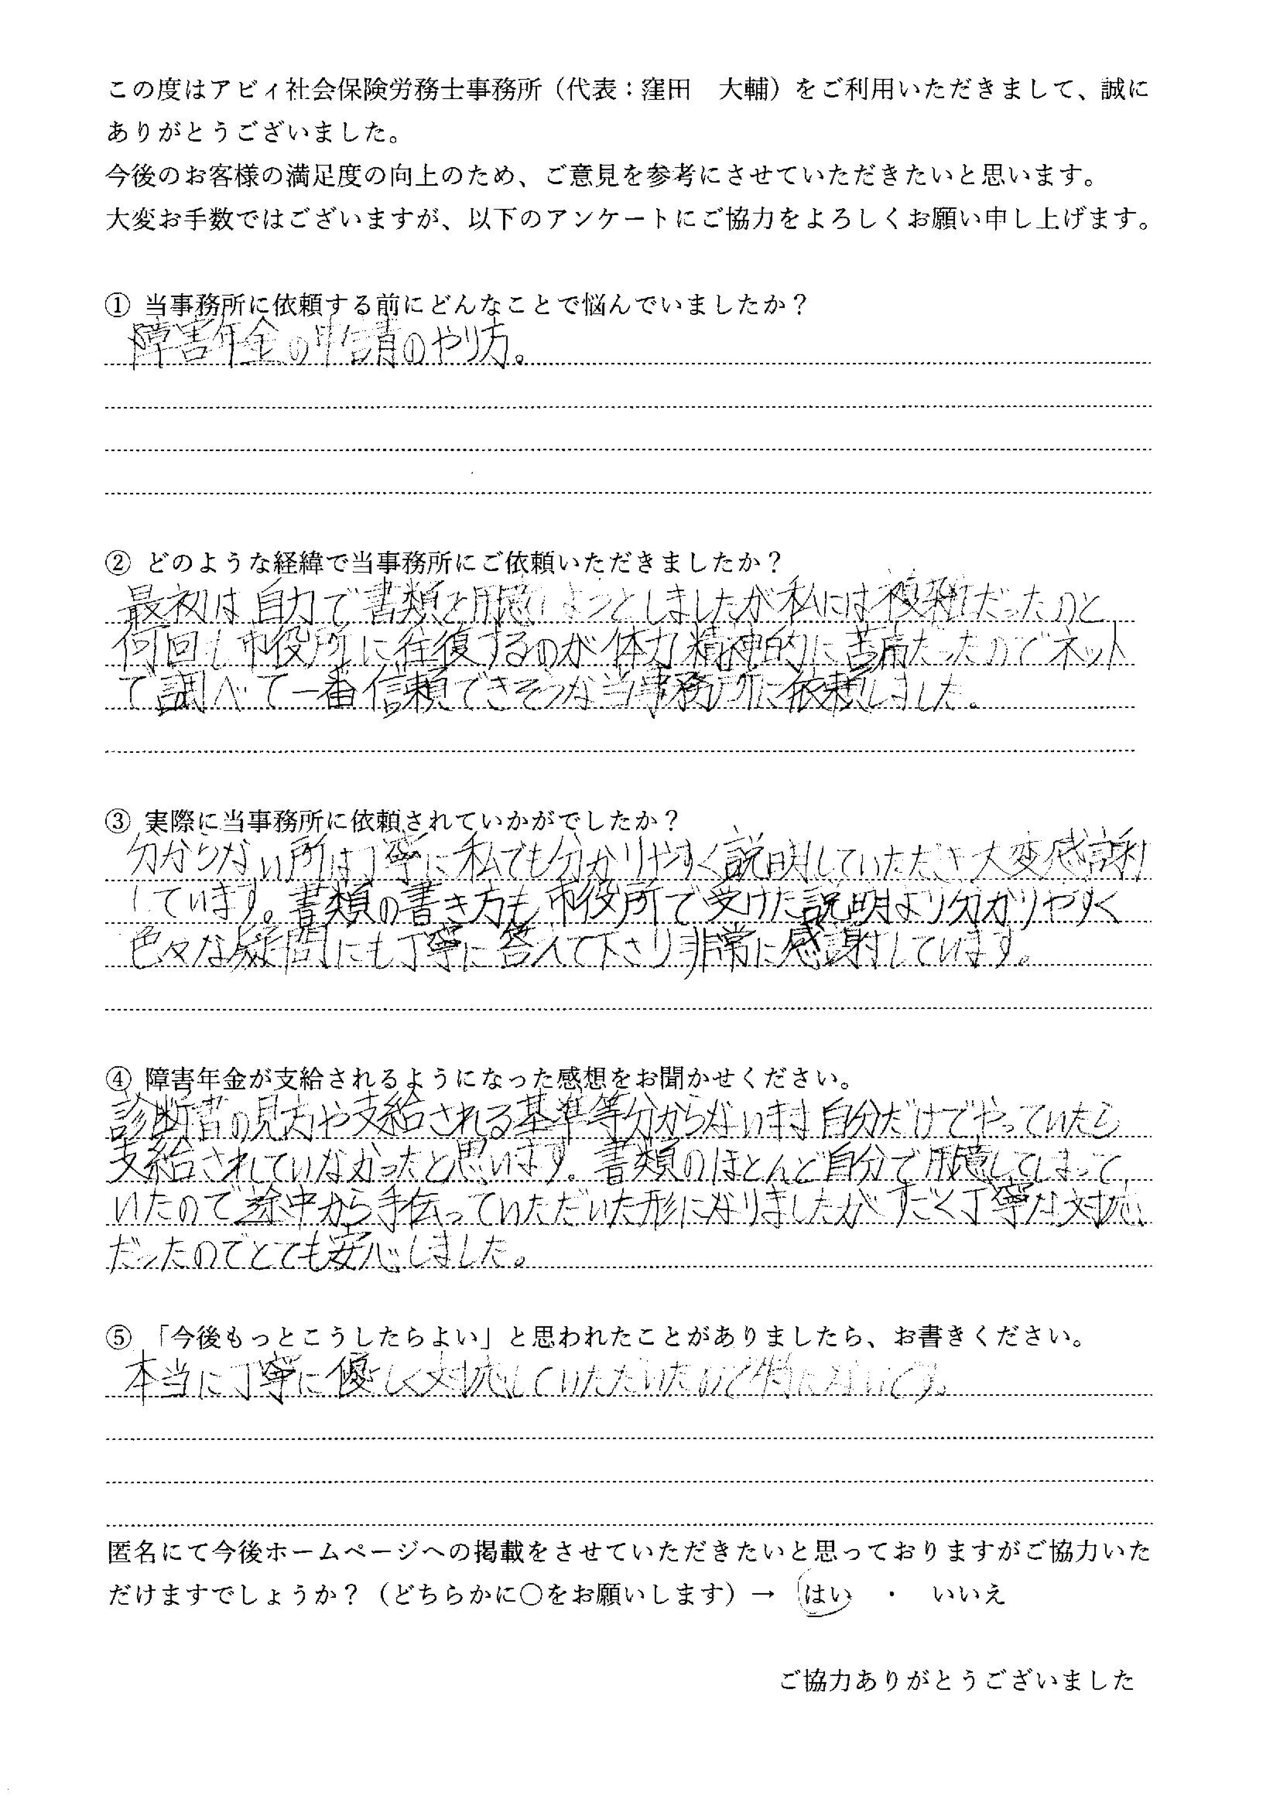 この度はアビィ社会保険労務士事務所（代表：窪田　大輔）をご利用いただきまして、誠に
ありがとうございました。
今後のお客様の満足度の向上のため、ご意見を参考にさせていただきたいと思います。
大変お手数ではございますが、以下のアンケートにご協力をよろしくお願い申し上げます。
① 当事務所に依頼する前にどんなことで悩んでいましたか？
障害年金の申請のやり方。
② どのような経緯で当事務所にご依頼いただきましたか？
最初は自力で書類を用意しようとしましたが私には複雑だったのと
何回も市役所に往復するのが体力精神的に苦痛だったのでネット
で調べて一番信頼できそうな当事務所に依頼しました。
③ 実際に当事務所に依頼されていかがでしたか？
分からない所は丁寧に私でも分かりやすく説明していただき大変感謝
しています。書類の書き方も市役所で受けた説明より分かりやすく
色々な疑問にも丁寧に答えて下さり非常に感謝しています。
④ 障害年金が支給されるようになった感想をお聞かせください。
診断書の見方や支給される基準等分からないまま自分だけでやっていたら
支給されていなかったと思います。書類のほとんど自分で用意してしまって
いたので途中から手伝っていただいた形になりましたがすごく丁寧な対応
だったのでとても安心しました。
⑤ 「今後もっとこうしたらよい」と思われたことがありましたら、お書きください。
本当に丁寧に優しく対応していただいたので特にないです。
匿名にて今後ホームページへの掲載をさせていただきたいと思っておりますがご協力いた
だけますでしょうか？（どちらかに〇をお願いします）→　はい　・　いいえ
ご協力ありがとうございました